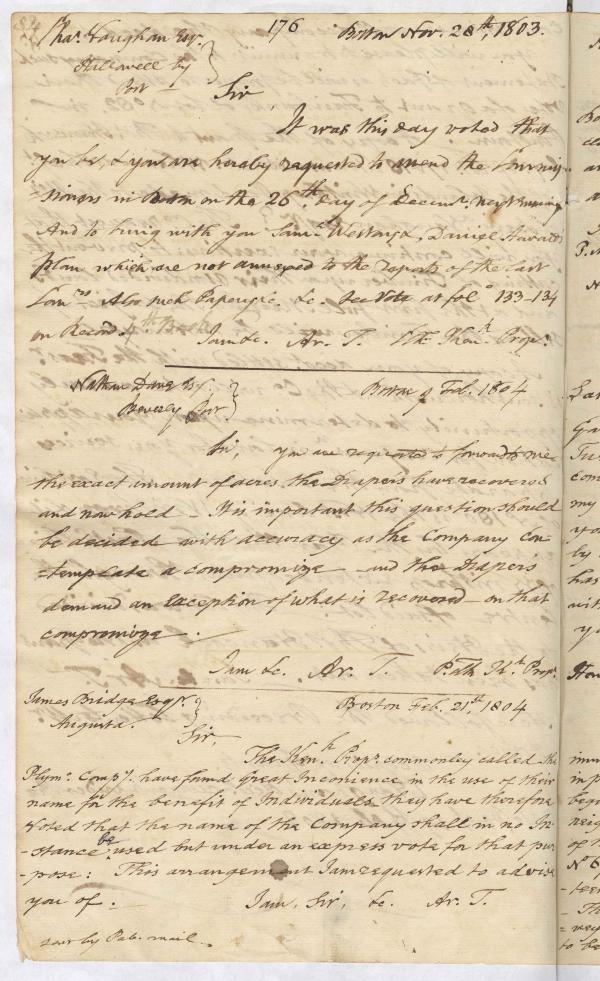 176 Boston Nov. 28th, 1803.
Chas. Vaughan Esqr.
Hallowell by
Post
Sir,
It was this day voted that
you be, & you are hereby requested to attend the Commis-
=sioners in Boston on the 26th. Day of Decemr. next ensuing
And to bring with you Saml.
Plan which are not annexed to the reports of the last
Comrs. Also such Papers, &c. See Vote at folo. 133-134
on Record. 4th Book
I am &c. Ar. T. Kenk. Propr.
Nathan Dane Esqr.
Beverly
Boston 9 Feb. 1804
Sir, you are requested to forward to me
the exact amount of acres the Drapers have recovered
and now hold - It is important this question should
be decided with accuracy as the Company Con
=template a compromize and the Drapers
demand an exception of what is recovered on that
compromize.
I am &c. Ar. T. Kh. Propr.
James Bridge Esqr.
Augusta.
Boston Feb. 21st, 1804
Sir,
The Kenk. Propr. commonley called the
Plymo. Compy. have found Great Inconience in the use of their
name for the benefit of Individuals they have therefore
Voted that the name of the Company shall in no In-
-stance be used but under an express vote for that pur
-pose: This arrangement I am requested to advise
you of. I am, Sir, &c. Ar. T.
sent by Pub. mail.